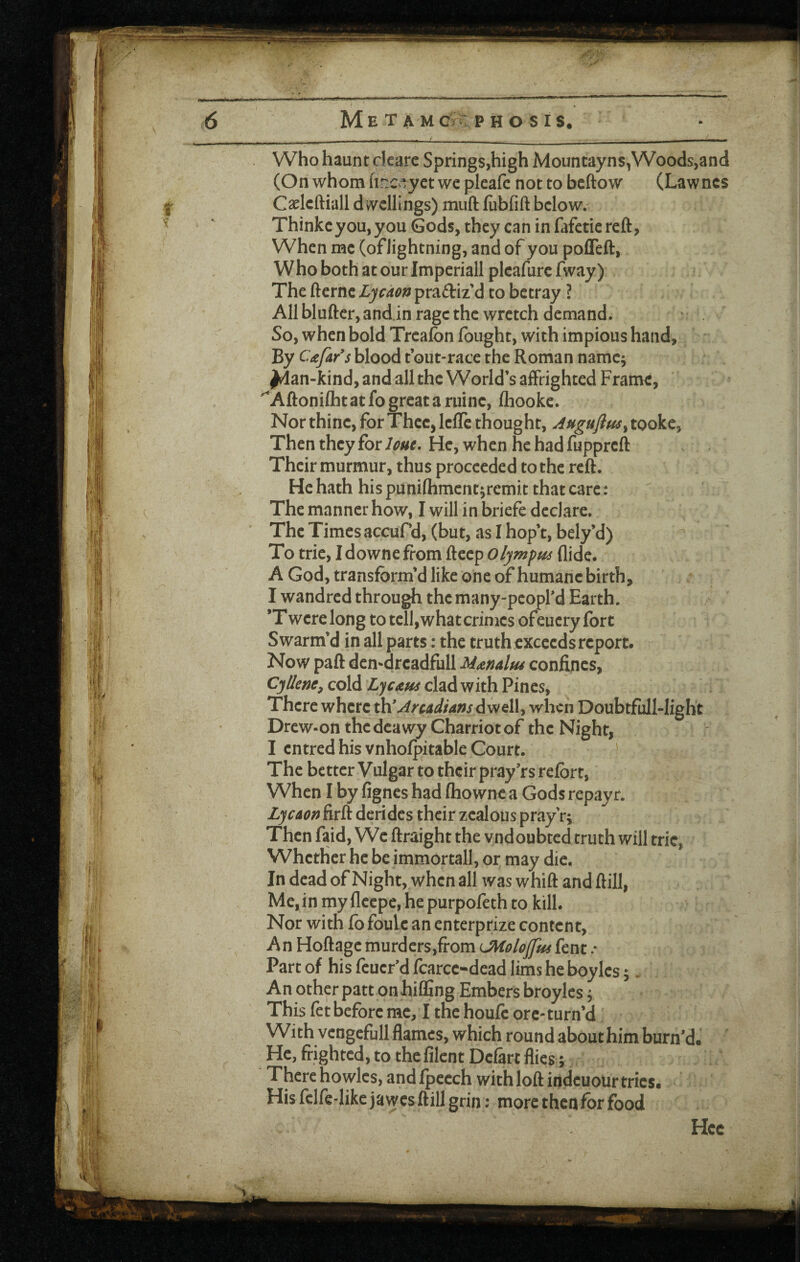 6 METAMORPHOSIS.
Who haunt cleare Springs,high Mountayns,Woods,and
(On whom since yet we please not to bestow (Lawnes
Cælestiall dwellings) must subsist below.
Thinke you, you Gods, they can in safetie rest,
When me (of lightning, and of you possest,
Who both at our Imperiall pleasure sway)
The sterne Lycaon practiz'd to betray ?
All bluster, and in rage the wretch demand.
So, when bold Treason sought, with impious hand,
By Cæsar's blood t'out-race the Roman name;
Man-kind, and all the World's affrighted Frame,
Astonisht at so great a ruine, shooke.
Nor thine, for Thee, lesse thought, Augustus, tooke,
Then they for Ioue. He, when he had supprest
Their murmur, thus proceeded to the rest.
He hath his punishment;remit that care:
The manner how, I will in briefe declare.
The Times accus'd, (but, as I hop't, bely'd)
To trie, I downe from steep Olympus slide.
A God, transform'd like one of humane birth,
I wandred through the many-peopl'd Earth.
'Twere long to tell,what crimes of euery sort
Swarm'd in all parts: the truth exceeds report.
Now past den-dreadfull Mænalus confines,
Cyllene, cold Lycæus clad with Pines,
There where th'Arcadians dwell, when Doubtfull-light
Drew-on the deawy Charriot of the Night,
I entred his vnhospitable Court.
The better Vulgar to their pray'rs resort,
When I by signes had showne a Gods repayr.
Lycaon first derides their zealous pray'r;
Then said, We straight the vndoubted truth will trie,
Whether he be immortall, or may die.
In dead of Night, when all was whist and still,
Me, in my sleepe, he purposeth to kill.
Nor with so foule an enterprize content,
An Hostage murders,from Molossus sent:
Part of his seuer'd scarce-dead lims he boyles;
An other patt on hissing Embers broyles;
This set before me, I the house ore-turn'd
With vengefull flames, which round about him burn'd.
He, frighted, to the silent Desart flies;
There howles, and speech with lost indeuour tries.
His selfe-like jawes still grin: more then for food
Hee